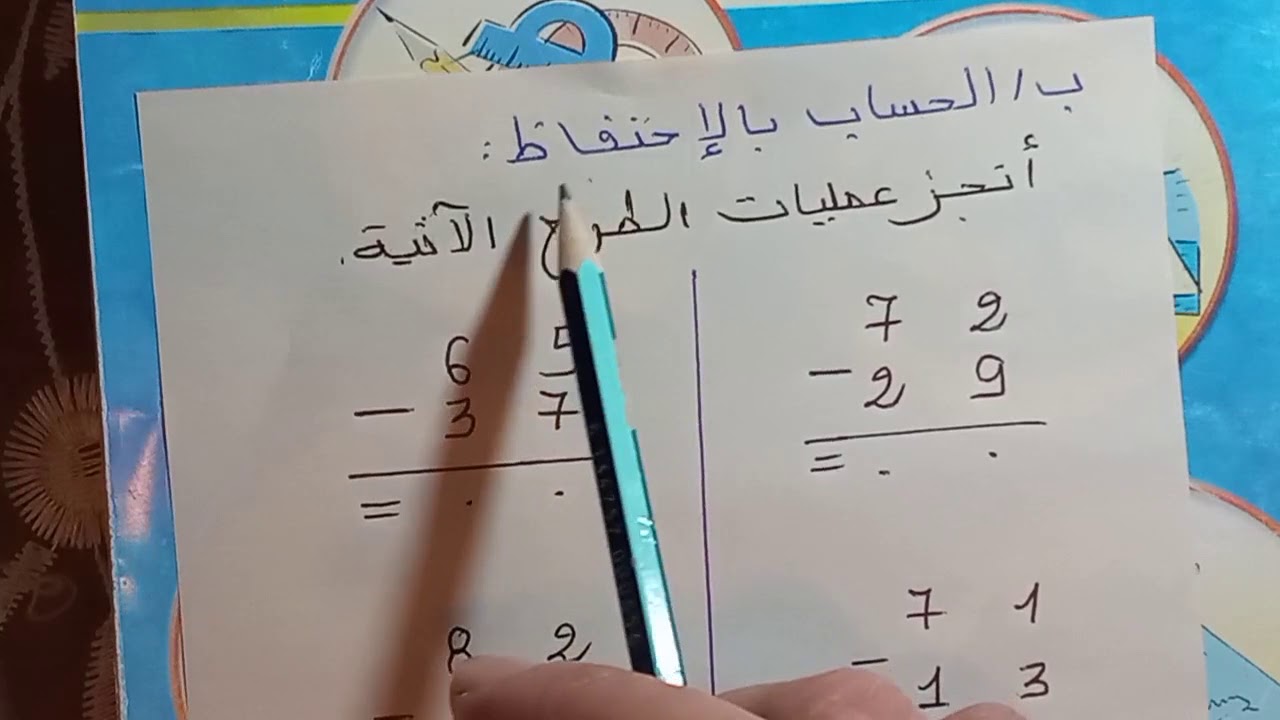 ب/ الحساب بالإحتفاظ:
أنجز عمليات الطرح الآتية.
7 2
- 2 9
= . .
6 5
- 3 7
= . .
7 1
- 1 3
8 2
-